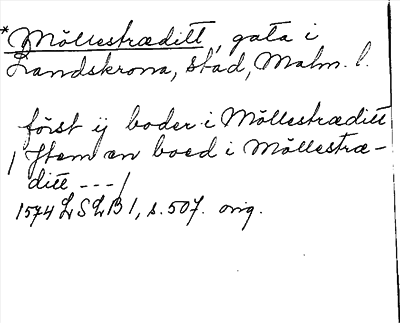 *Möllestræditt, gata i
Landskrona, stad, Malm. l.
först ij boder i Möllestræditt
/ Jtem en boed i Möllestræ-
ditt --- /
1574 LSLB 1, s. 507. orig.